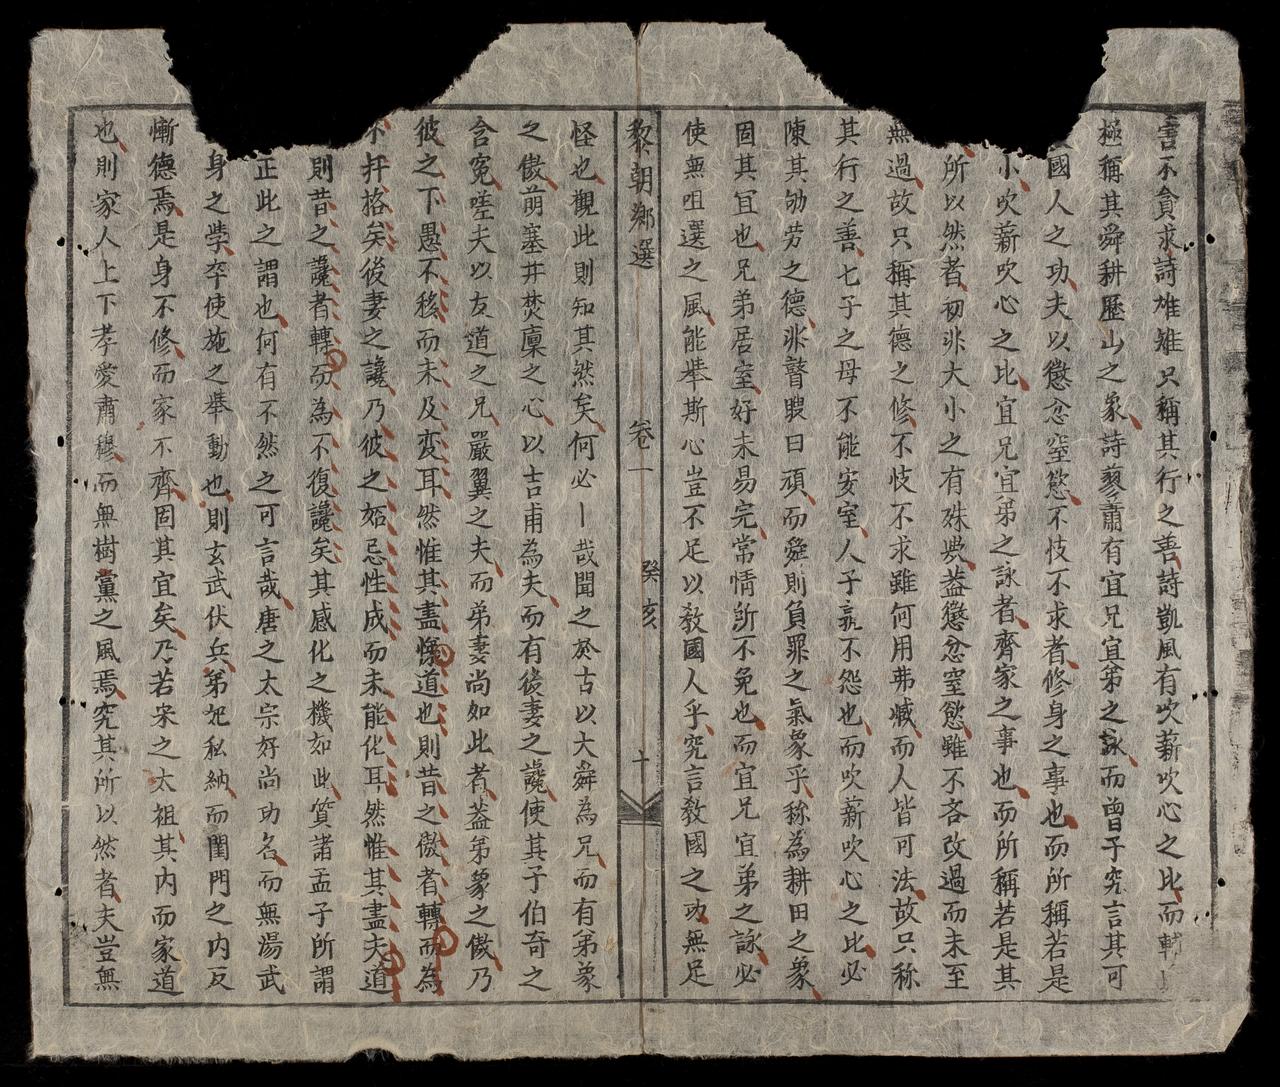 言不貪求詩雄雉只稱其行之善詩凱風有吹薪吹心之比而
極稱其舜耕歷山之象詩蓼蕭有宜兄宜弟之詠而曾子究言其可
國人之功夫以懲忿窒慾不忮不求者修身之事也而所稱若是
小吹薪吹心之比宜兄宜弟之詠者齊家之事也而所稱若是其
所以然者初非大小之有殊歟蓋懲忿窒慾雖不吝改過而未至
無過故只稱其德之修不忮不求雖何用弗臧而人皆可法故只称
其行之善七子之母不能安室人子孰不怨也而吹薪吹心之比必
陳其劬劳之德非瞽瞍曰頑而舜則負罪之氣象乎称為耕田之象
固其宜也兄弟居室好未易完常情所不免也而宜兄宜弟之詠必
使無咀選之風能舉斯心豈不足以教國人乎究言教國之功無足
黎朝鄉選 卷一 癸亥 十
怪也觀此則知其然矣何必丨哉聞之於古以大舜為兄而有弟象
之傲萌塞井焚廩之心以吉甫為夫而有後妻之讒使其子伯奇之
含冤嗟夫以友道之兄嚴翼之夫而弟妻尚如此者蓋弟象之傲乃
彼之下愚不移而未及変耳然惟其盡悌道也則昔之傲者轉而為
不扞格矣後妻之讒乃彼之妬忌性成而未能化耳然惟其盡夫道
則昔之讒者轉而為不復讒矣其感化之機如此質諸孟子所謂
正此之謂也何有不然之可言哉唐之太宗好尚功名而無湯武
身之學卒使施之舉動也則玄武伏兵弟妃私納而閨門之内反
慚德焉是身不修而家不齊固其宜矣乃若宋之太祖其内而家道
也則家人上下孝愛肅穆而無樹黨之風焉究其所以然者夫豈無